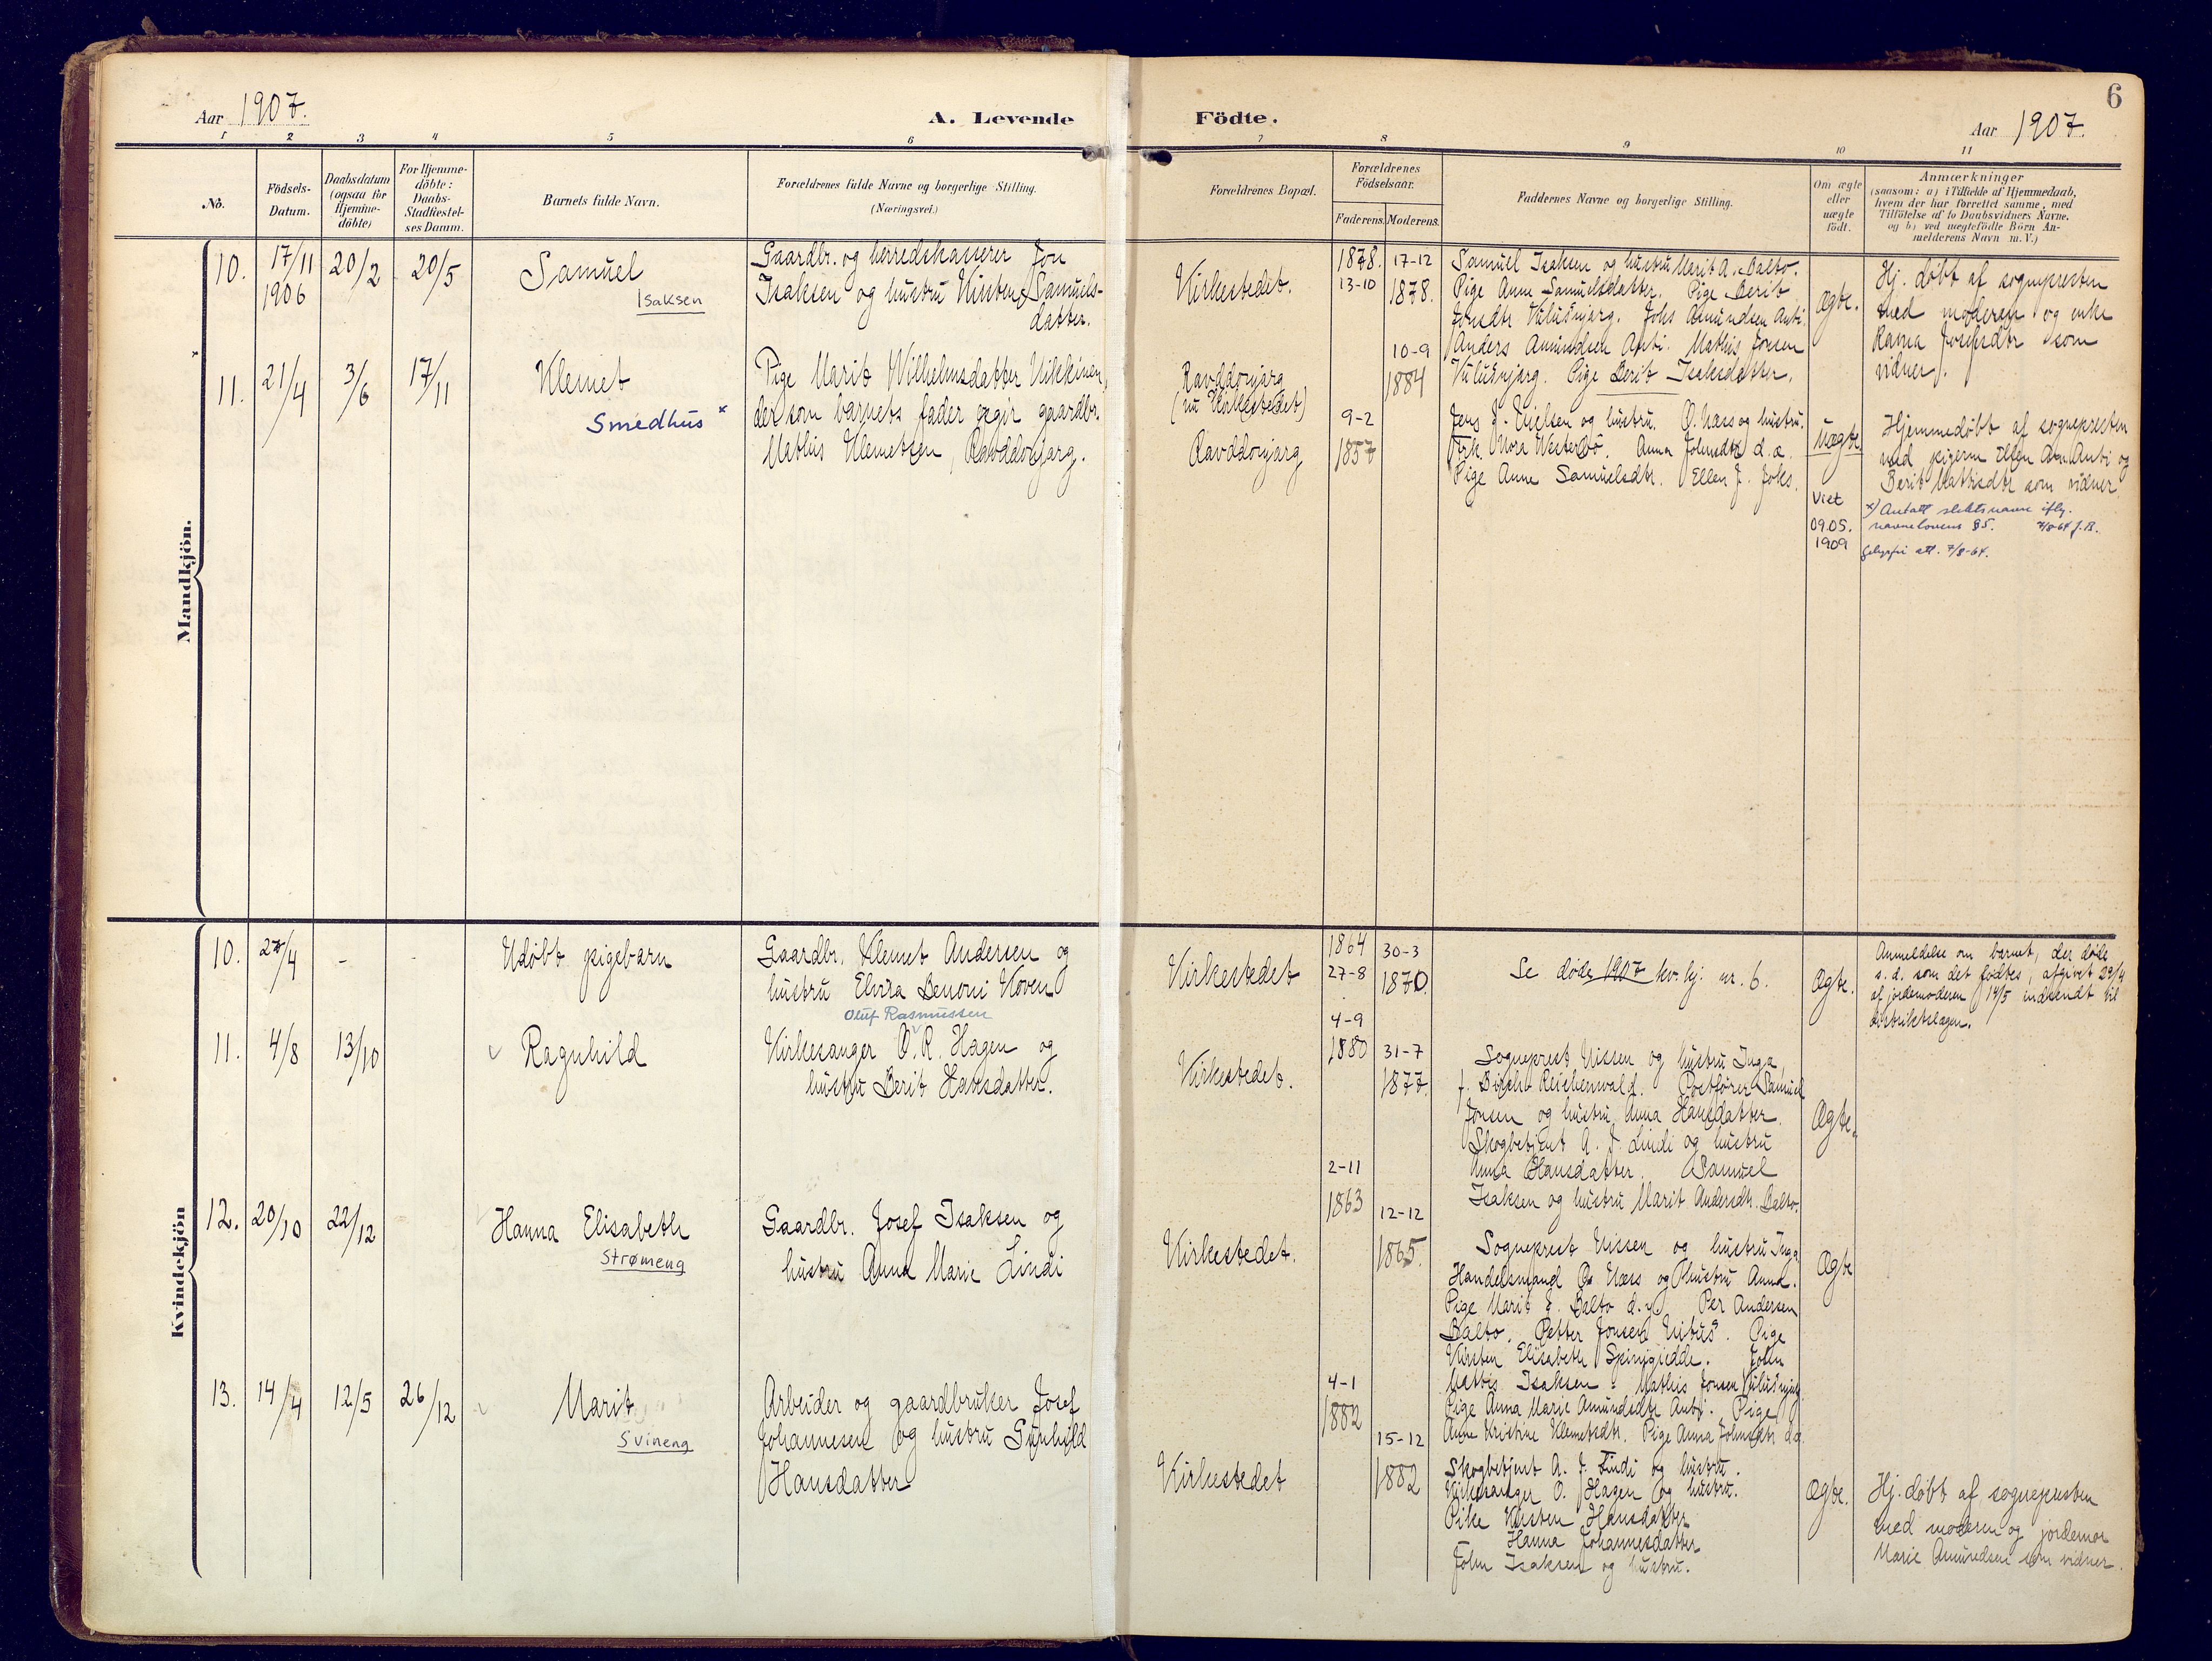 Aar 1907.
A. Levende Födte.
Aar 1907.
6
1 2 3 4 5 6 7 8 9 10 11
No.
Födsels-
Datum.
Daabsdatum
(ogsaa for
Hjemme-
döbte)
For Hjemme-
döbte:
Daabs-
Stadfæstel-
ses Datum.
Barnets fulde Navn.
Forældrenes fulde Navne og borgerlige Stilling.
(Næringsvei.)
Forældrenes Bopæl.
Forældrenes
Födselsaar.
Faderens. Moderens.
Faddernes Navne og borgerlige Stilling.
Om ægte
eller
uægte
födt.
Anmærkninger
(saasom: a) i Tilfælde af Hjemmedaab,
hvem der har forrettet samme, med
Tilföielse af to Daabsvidners Navne.
og b) ved uægtefödte Börn An-
melderens Navn m. V.)
Mandkjön.
10.
17/11
1906
20/2
20/5
Samuel
Isaksen
Gaardbr. og herredskasserer Jon
Isaksen og hustru Kirsten Samuels-
datter.
Kirkestedet.
1878.
13-10
17-12
1878.
Samuel Isaksen og hustru Marit A. Balto.
Pige Anne Samuelsdatter. Pige Berit
Jonsdtr Vuludnjarg. Johs Amundsen Anti.
Anders Amundsen Anti. Mathis Jonsen
Vuludnjarg. Pige Berit Isaksdatter.
Ægte.
Hj. døbt af sognepresten
med moderen og enke
Ravna Josefsdtr som
vidner.
11.
21/4
3/6
17/11
Klemet
Smedhus x
Pige Marit Wilhelmsdatter Vikkinen,
der som barnets fader opgir gaardbr.
Mathis Klemetsen, Ravddonjarg.
Ravddonjarg
(nu Kirkestedet)
Ravddonjarg
9-2
1857
10-9
1884
Jens J. Nielsen og hustru. O. Næss og hustru.
Frk. Nora Westerbö. Anna Johnsdtr d.æ.
Pige Anne Samuelsdtr. Ellen J. Johs.
Uægte
Viet
09.05.
1909
Hjemmedøbt af sognepresten
med pigerne Ellen Am. Anti og
Berit Mathisdtr som vidner.
x) Antatt slektsnavn iflg.
navnelovens §5. 7/8-64 J.B.
Gebyrfri att. 7/8-64.
Kvindekjön
10.
/4
-
-
Udøbt pigebarn
Gaardbr. Klemet Andersen og
hustru Elvira Benoni Koven
Kirkestedet
1864
27-8
30-3
1870.
Se døde 1907 kv.kj. nr. 6.
Ægte.
Anmeldelse om barnet, der døde
s. d. som det fødtes, afgivet 29/4
af jordemoderen 14/5 indsendt til
distriktslægen.
11.
4/8
13/10
v Ragnhild
Oluf Rasmussen
Kirkesanger O. R. Hagen og
hustru Berit Hansdatter.
Kirkestedet.
4-9
1880
31-7
1877.
Sogneprest Nissen og hustru Inga,
f. Birch-Reichenwald. Postfører Samuel
Jonsen og hustru Anna Hansdatter.
Skogbetjent A. J. Lindi og hustru
Anna Hansdatter. Samuel
Isaksen og hustru Marit Andersdtr. Balto.
Ægte.
12.
20/10
22/12
Hanna Elisabeth
Strømeng
Gaardbr. Josef Isaksen og
hustru Anna Marie Lindi
Kirkestedet.
2-11
1863
12-12
1865.
Sogneprest Nissen og hustru Inga.
Handelsmand O. Næss og hustru Anna.
Pige Marit P. Balto d.y. Per Andersen
Balto. Petter Jonsen Nitus. Pige
Kirsten Elisabeth Spinjgiedde. John
Mattis Isaksen. Mathis Jonsen Vuludnjarg.
Pige Anna Marie Amundsdtr Anti. Pige
Anne Kristine Klemetsdtr. Pige Anna Johnsdtr d.æ.
Ægte
13.
14/4
12/5
26/12
Marit
Svineng
Arbeider og gaardbruker Josef
Johannesen og hustru Gunhild
Hansdatter
Kirkestedet
4-1
1882
15-12
1882
Skogbetjent A. J. Lindi og hustru.
Kirkesanger O. Hagen og hustru.
Pike Kirsten Hansdatter
— Hanna Johannesdatter
John Isaksen og hustru.
Ægte.
Hj. døbt af sognepresten
med moderen og jordemor
Marie Amundsen som vidner.